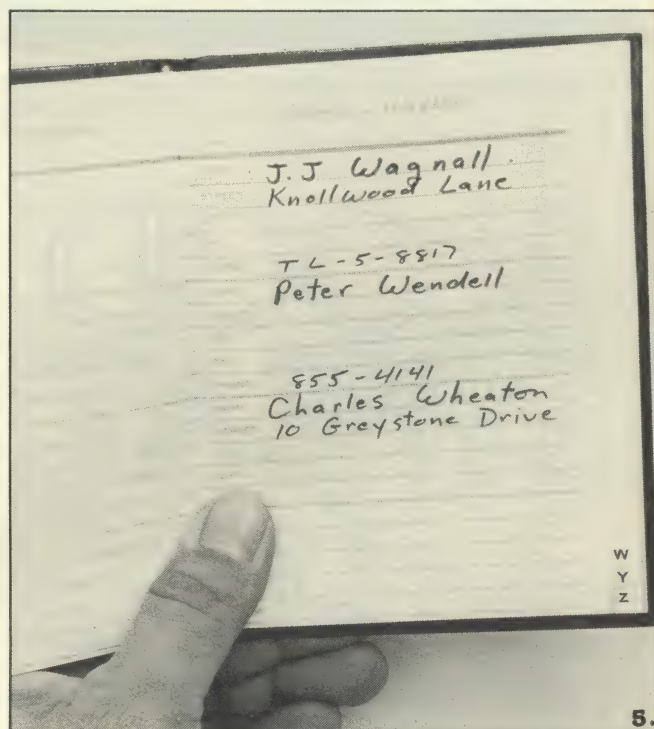 J.J Wagnall
Knollwood Lane
TL-5-8817
Peter Wendell
855-4141
Charles Wheaton
10 Greystone Drive
W
Y
Z
5.